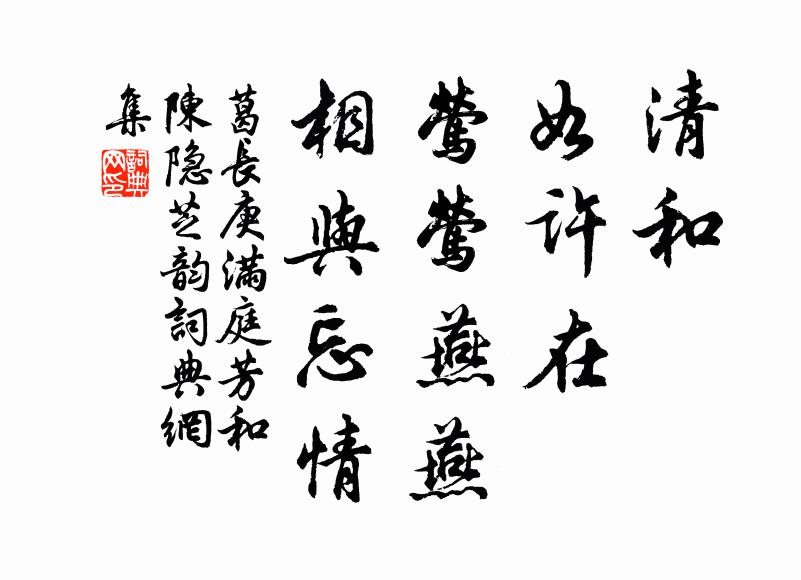 清和
如许在
莺莺燕燕
相與忘情
葛長庚满庭芳和
陳隐芝韵詞典網
集
詞典网印